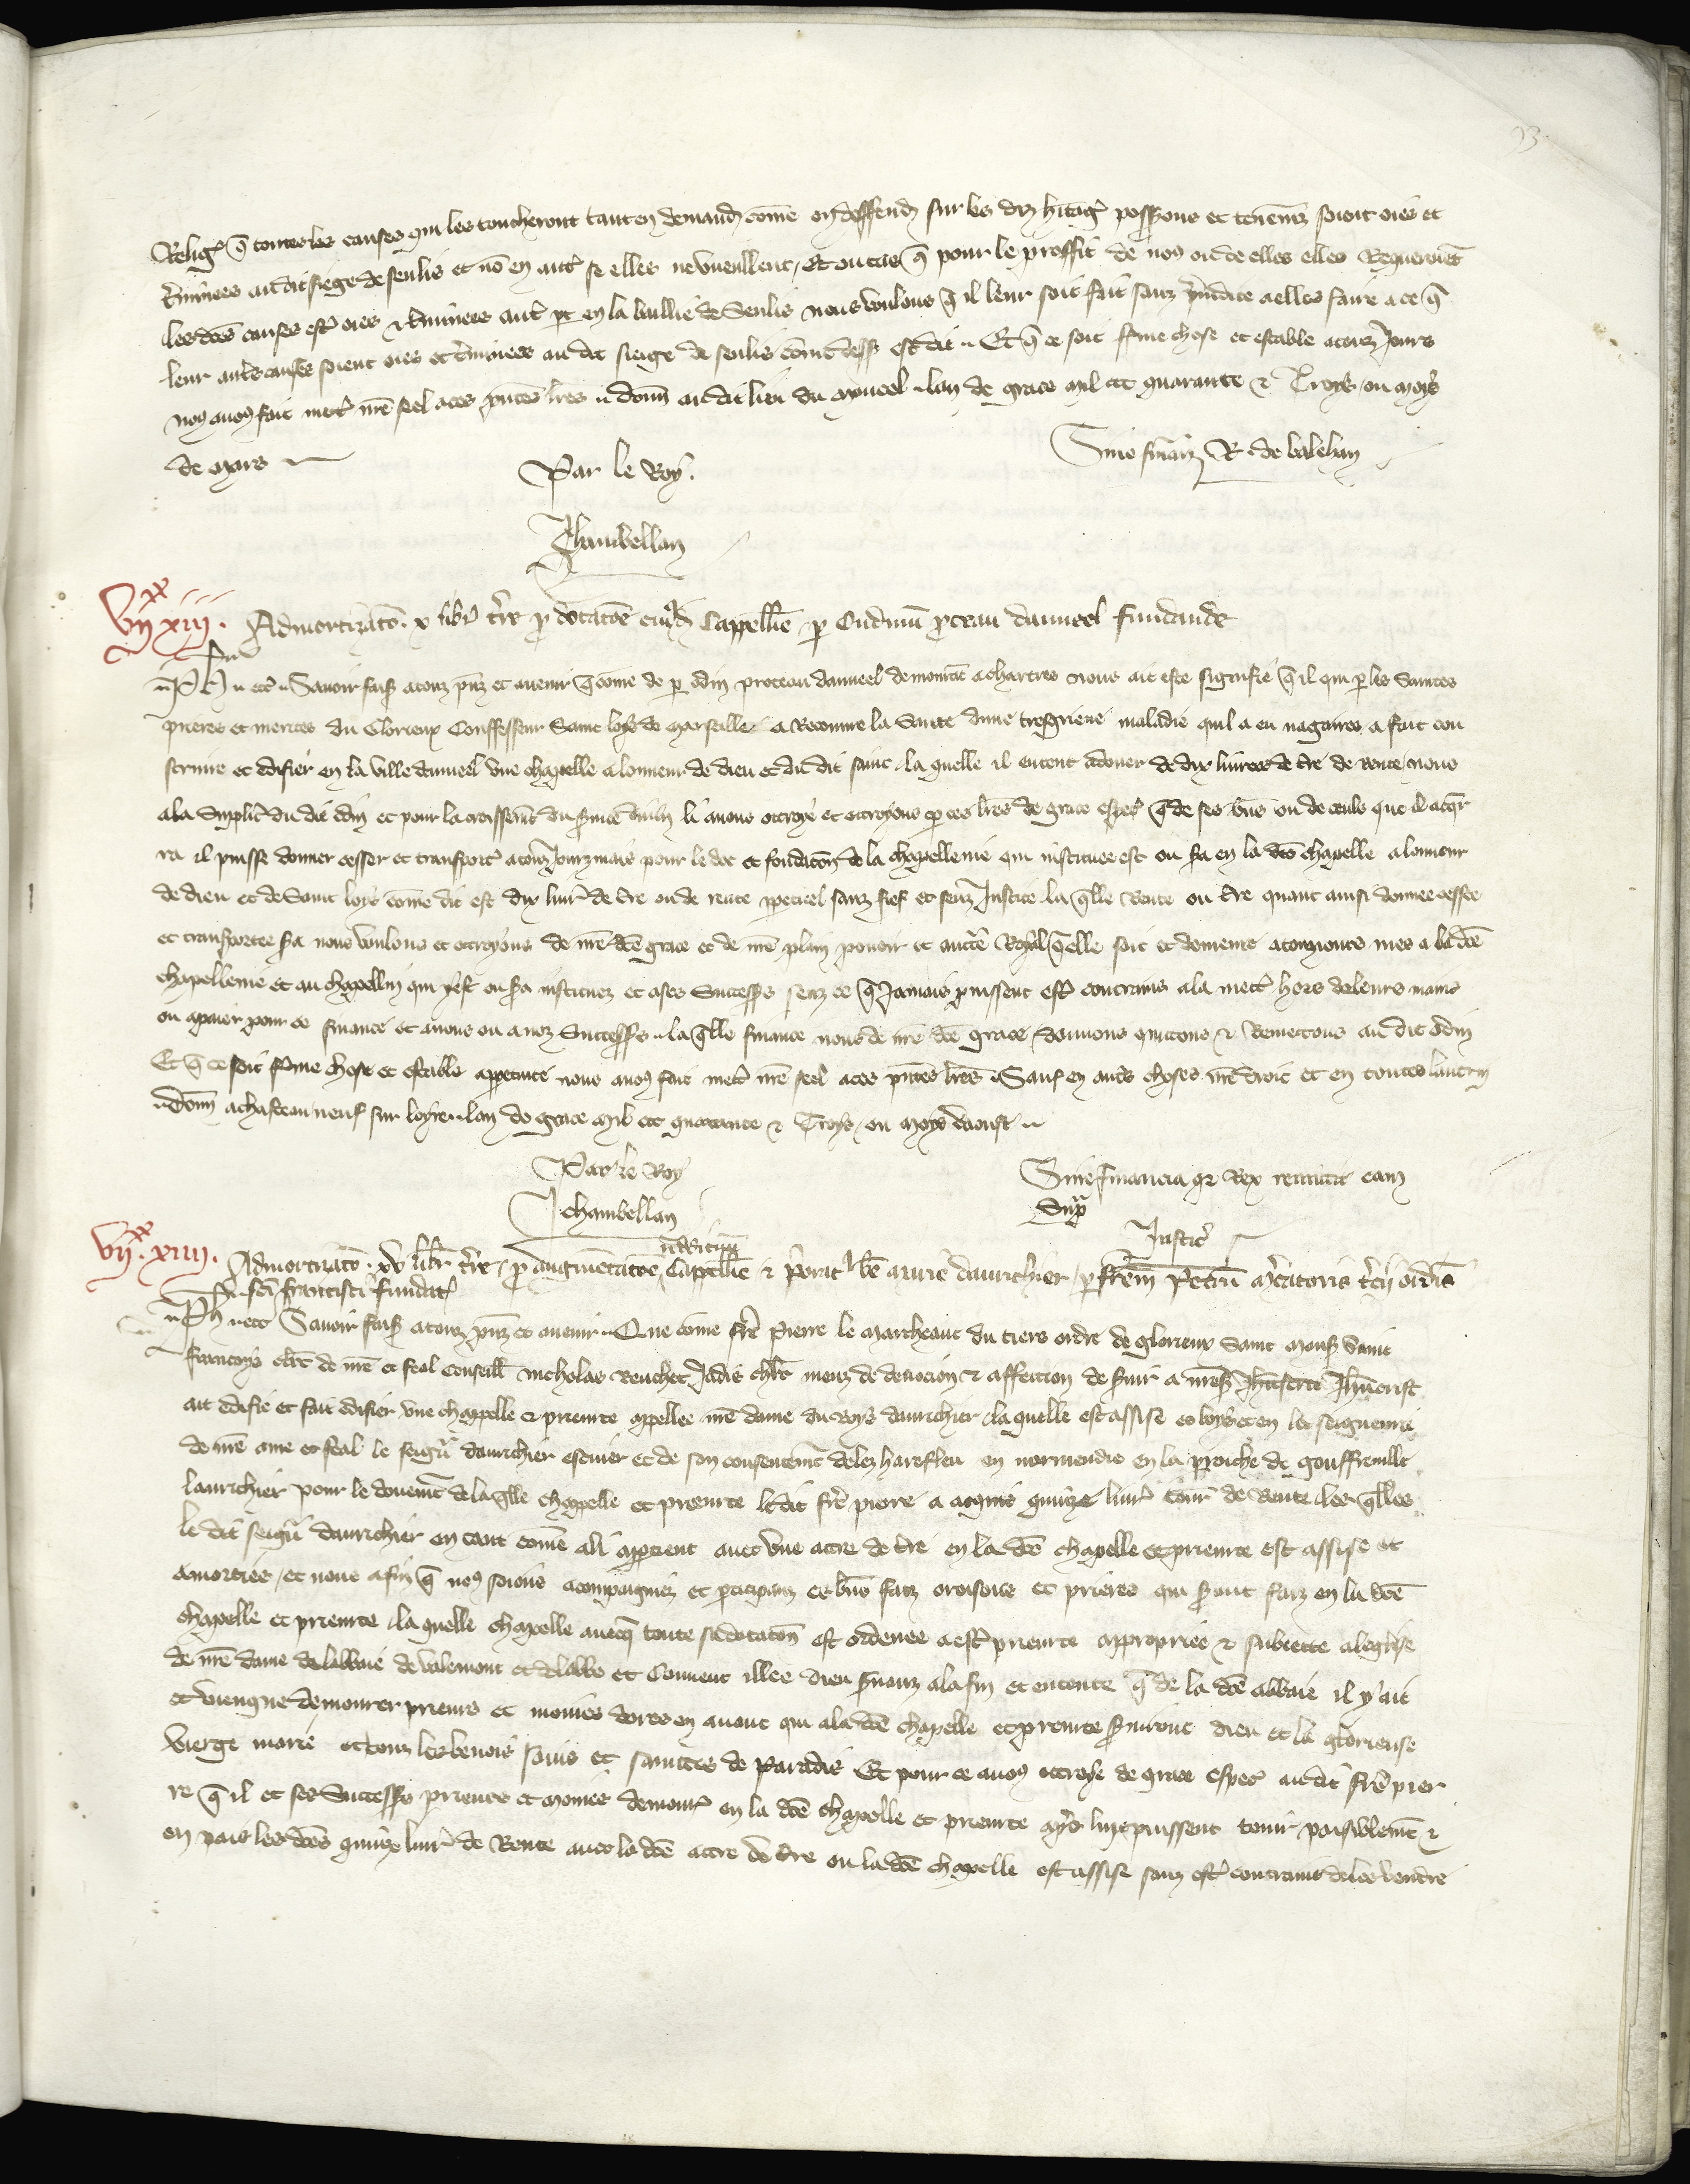 93
Religs q̃ toutes les causes qui les toucheront tant en demand come en deffend sur les diz hitag possons et tenemz soient oies et
t̃minees audit siege de senlis et nõ en autr̃ se elles ne vueillent, Et ou cas q̃ pour le proffit de nous ou de elles elles Requeroiẽt
les dc̃es causes estr̃ oies & t̃minees autr̃ pt en la baillie de Senlis nous voulons q̃ il leur soit fait sanz p̃iudice a elles faire a ce q̃
leur autres causes soient oies et t̃minees au dit siege de senlis cõme dess' est dit .. Et q̃ ce soit ferme chose et estable a touz Jours
nous avons fait mett̃ nr̃e seel a ces p̃ntes lr̃es .. donn̄ au dit lieu du moncel .. lan de grace mil ccc quarante & Troys ou moys
de mars
Par le Roy.
Chambellan
Sine finan̄. R. de balehan
VIIxx xiii. Admortizac̃o. x libr̃ t̃re p̃ dotac̃oe cuiusd̃ Cappell̃ie p Oudinũ p̃teau danneel fundande
Ph̃ .. etc̃ .. Savoir faiss a touz p̃nz et avenir q̃ come de p odin proteau danneel demourãt a chartres nous ait este signifie q̃ il qui p les Saintes
prieres et merites du Glorieux Confesseur Saint loys de Marseille a Recouvre la Sante dune tresgrieve maladie quil a eu nagaires, a fait con
struire et edifier en la ville danneel une chapelle a lonneur de dieu et du dit saint, la quelle il entent a douer de dix livrees de t̃re de Rente, nous
a la Supplic̃ du dit odin et pour lacroissem̃t du s̃vice divin li avons ottroye et ottroyons p ces lr̃es de grace esp̃al q̃ de ses biens ou de ceuls que il acq̃r
ra il puisse donner cesser et transport̃ a touz Jourz mais pour le doe et fondacõn de la chapellenie qui instituee est ou sera en la dc̃e chapelle a lonneur
de dieu et de Saint loys cõme dit est dix livr̃ de t̃re ou de rente p̃petuel sanz fief et senz Justice la q̃lle Rente ou t̃re quant ainsi donnee cessee
et transportee sera nous voulons et ottroyons de nr̃e dc̃e grace et de nr̃e plain pouoir et auct̃e Royal q̃ elle soit et demeure a touzjours mes a la dc̃e
chapellenie et au chapellain qui y est ou sera instituez et a ses Success̃s senz ce q̃ Jamais puissent estr̃ contrains a la mett̃ hors de leurs mains
ou a paier pour ce finance et a nous ou a noz Success̃s .. la q̃lle finance nous de nr̃e dc̃e grace, donnons quittons & Remettons au dit odin
Et q̃ ce soit ferme chose et estable a p̃petuite nous avons fait mett̃ nr̃e seel a ces p̃ntes lr̃es Sauf en autres choses nr̃e droit et en toutes lautruy
.. donn̄ a chasteauneuf sur loyre .. lan de grace mil ccc quarante & Troys, ou moys daoust ..
Par le Roy
Chambellan
Sine financia q̃ Rex remittit eam
Supr̃a
Justic̃
VIIxx. xiiii. Admortizac̃o. xv libr̃ t̃re, p̃ augmẽtac̃oe Cappell̃ie & p̃orat' be Marie dauricher, p frẽm Petrũ M̃catoris t̃cij ordĩs
sc̃i francisci fundat̃
Ph̃ .. etc̃ Savoir faiss a touz p̃nz et avenir .. Que cõme frẽ Pierre le Marcheant du tiers ordre de glorieux Saint Mons' Saint
francoys clerc de nr̃e et feal Conseill̃ Nicholas Beuchet Jadis chlr̃ meuz de devocion & affeccion de s̃vir a nr̃e Seign̄r Jh̃ucrist
ait edifie et fait edifier une chappelle & prieurte appellee nr̃e dame du Boys dauricher, la quelle est assise es boys et en la seigneurie
de nr̃e ame et feal le seign̄r dauricher escuier et de son consentem̃t delez harefleu en normendie en la paroiche de gouffreville
lauricher pour le douem̃t de la q̃lle chappelle et prieurte le dit frẽ pierre a acquis quinze livr̃ tour̃ de Rente, les q̃lles
le dit seign̄r dauricher en tant cõme a li apptient avec une acre de t̃re en la dc̃e chapelle et prieurte est assise et
amorties, et nous afin q̃ nous soions acompaigniez et pticipanz es biens faiz oroisons et prieres qui seront faiz en la dc̃e
chapelle et prieurte, la quelle chapelle avecq̃ toute sa dotacõn est ordenee a estr̃ prieurte appropriee & subiette a leglise
de nr̃e dame de labbaie de valemont et a labbe et Couvent illec dieu s̃vanz a la fin et entente q̃ de la dc̃e abbaie il y ait
et viengne demourer prieurs et moines dores en avant qui a la dc̃e chapelle et prieurte s̃viront dieu et la glorieuse
vierge marie et touz les benois sains et saintes de paradis Et pour ce avons ottroye de grace esp̃al au dit frẽ pier
re q̃ il et ses Success̃s prieurs et moines demour̃ en la dc̃e chapelle et prieurte apres luy puissent tenir paisiblem̃t &
en pais les dc̃es quinze livr̃ de Rente avec la dc̃e acre de t̃re ou la dc̃e chapelle est assise sanz estr̃ contrains de les vendre